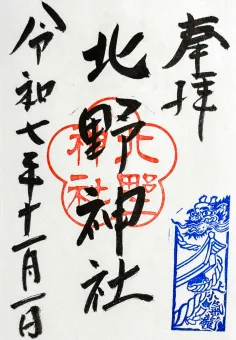 奉拝
北野神社
北野神社
令和七年十一月一日